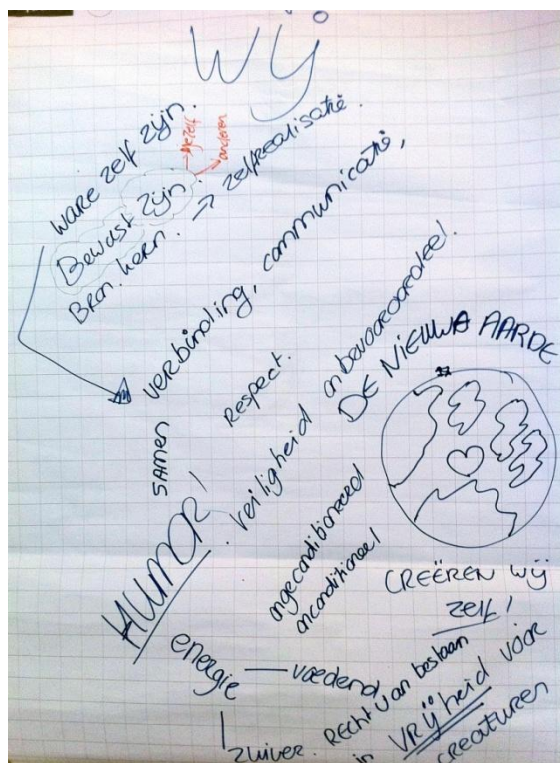 WIJ
ware zelf zijn.
Bewust zijn.
→ jezelf
→ anderen
Bron. kern. → zelfrealisatie.
verbinding, communicatie,
SAMEN
Respect.
HUMOR!
veiligheid onbevooroordeel.
DE NIEUWA AARDE
ongeconditioneerd
onconditioneel
CREËREN WIJ
zelf!
energie — voedend
zuiver.
Recht van bestaan
in VRIJheid voor
creaturen